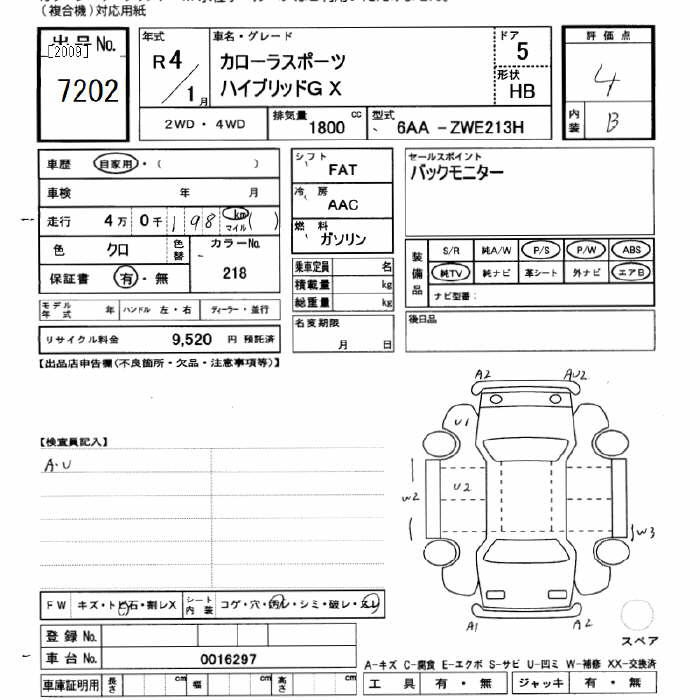 (複合機)対応用紙
出品No.
[2009]
7202
年式
R4/1月
車名・グレード
カローラスポーツ
ハイブリッドG X
ドア
5
形状
HB
評価点
4
内装
B
2WD・4WD
排気量
1800 cc
型式
6AA -ZWE213H
車歴 自家用・( )
車検 年 月
走行 4万 0千 198 km マイル ( )
色 クロ 色替 カラーNo. 218
保証書 有・無
シフト
FAT
冷房
AAC
燃料
ガソリン
乗車定員 名
積載量 kg
総重量 kg
セールスポイント
バックモニター
装備品
S/R 純A/W P/S P/W ABS
純TV 純ナビ 革シート 外ナビ エアB
ナビ型番:
モデル年式 年 ハンドル 左・右 ディーラー・並行
リサイクル料金 9,520 円 預託済
名変期限
月 日
後日品
【出品店申告欄(不良箇所・欠品・注意事項等)】
【検査員記入】
A・U
A2 AU2
U1
U2
W2
W3
A1 A2
スペア
FW キズ・トビ石・割レX シート内装 コゲ・穴・汚レ・シミ・破レ・スレ
登録No.
車台No. 0016297
車庫証明用 長さ cm 幅 cm 高さ cm
A-キズ C-腐食 E-エクボ S-サビ U-凹ミ W-補修 XX-交換済
工具 有・無 ジャッキ 有・無